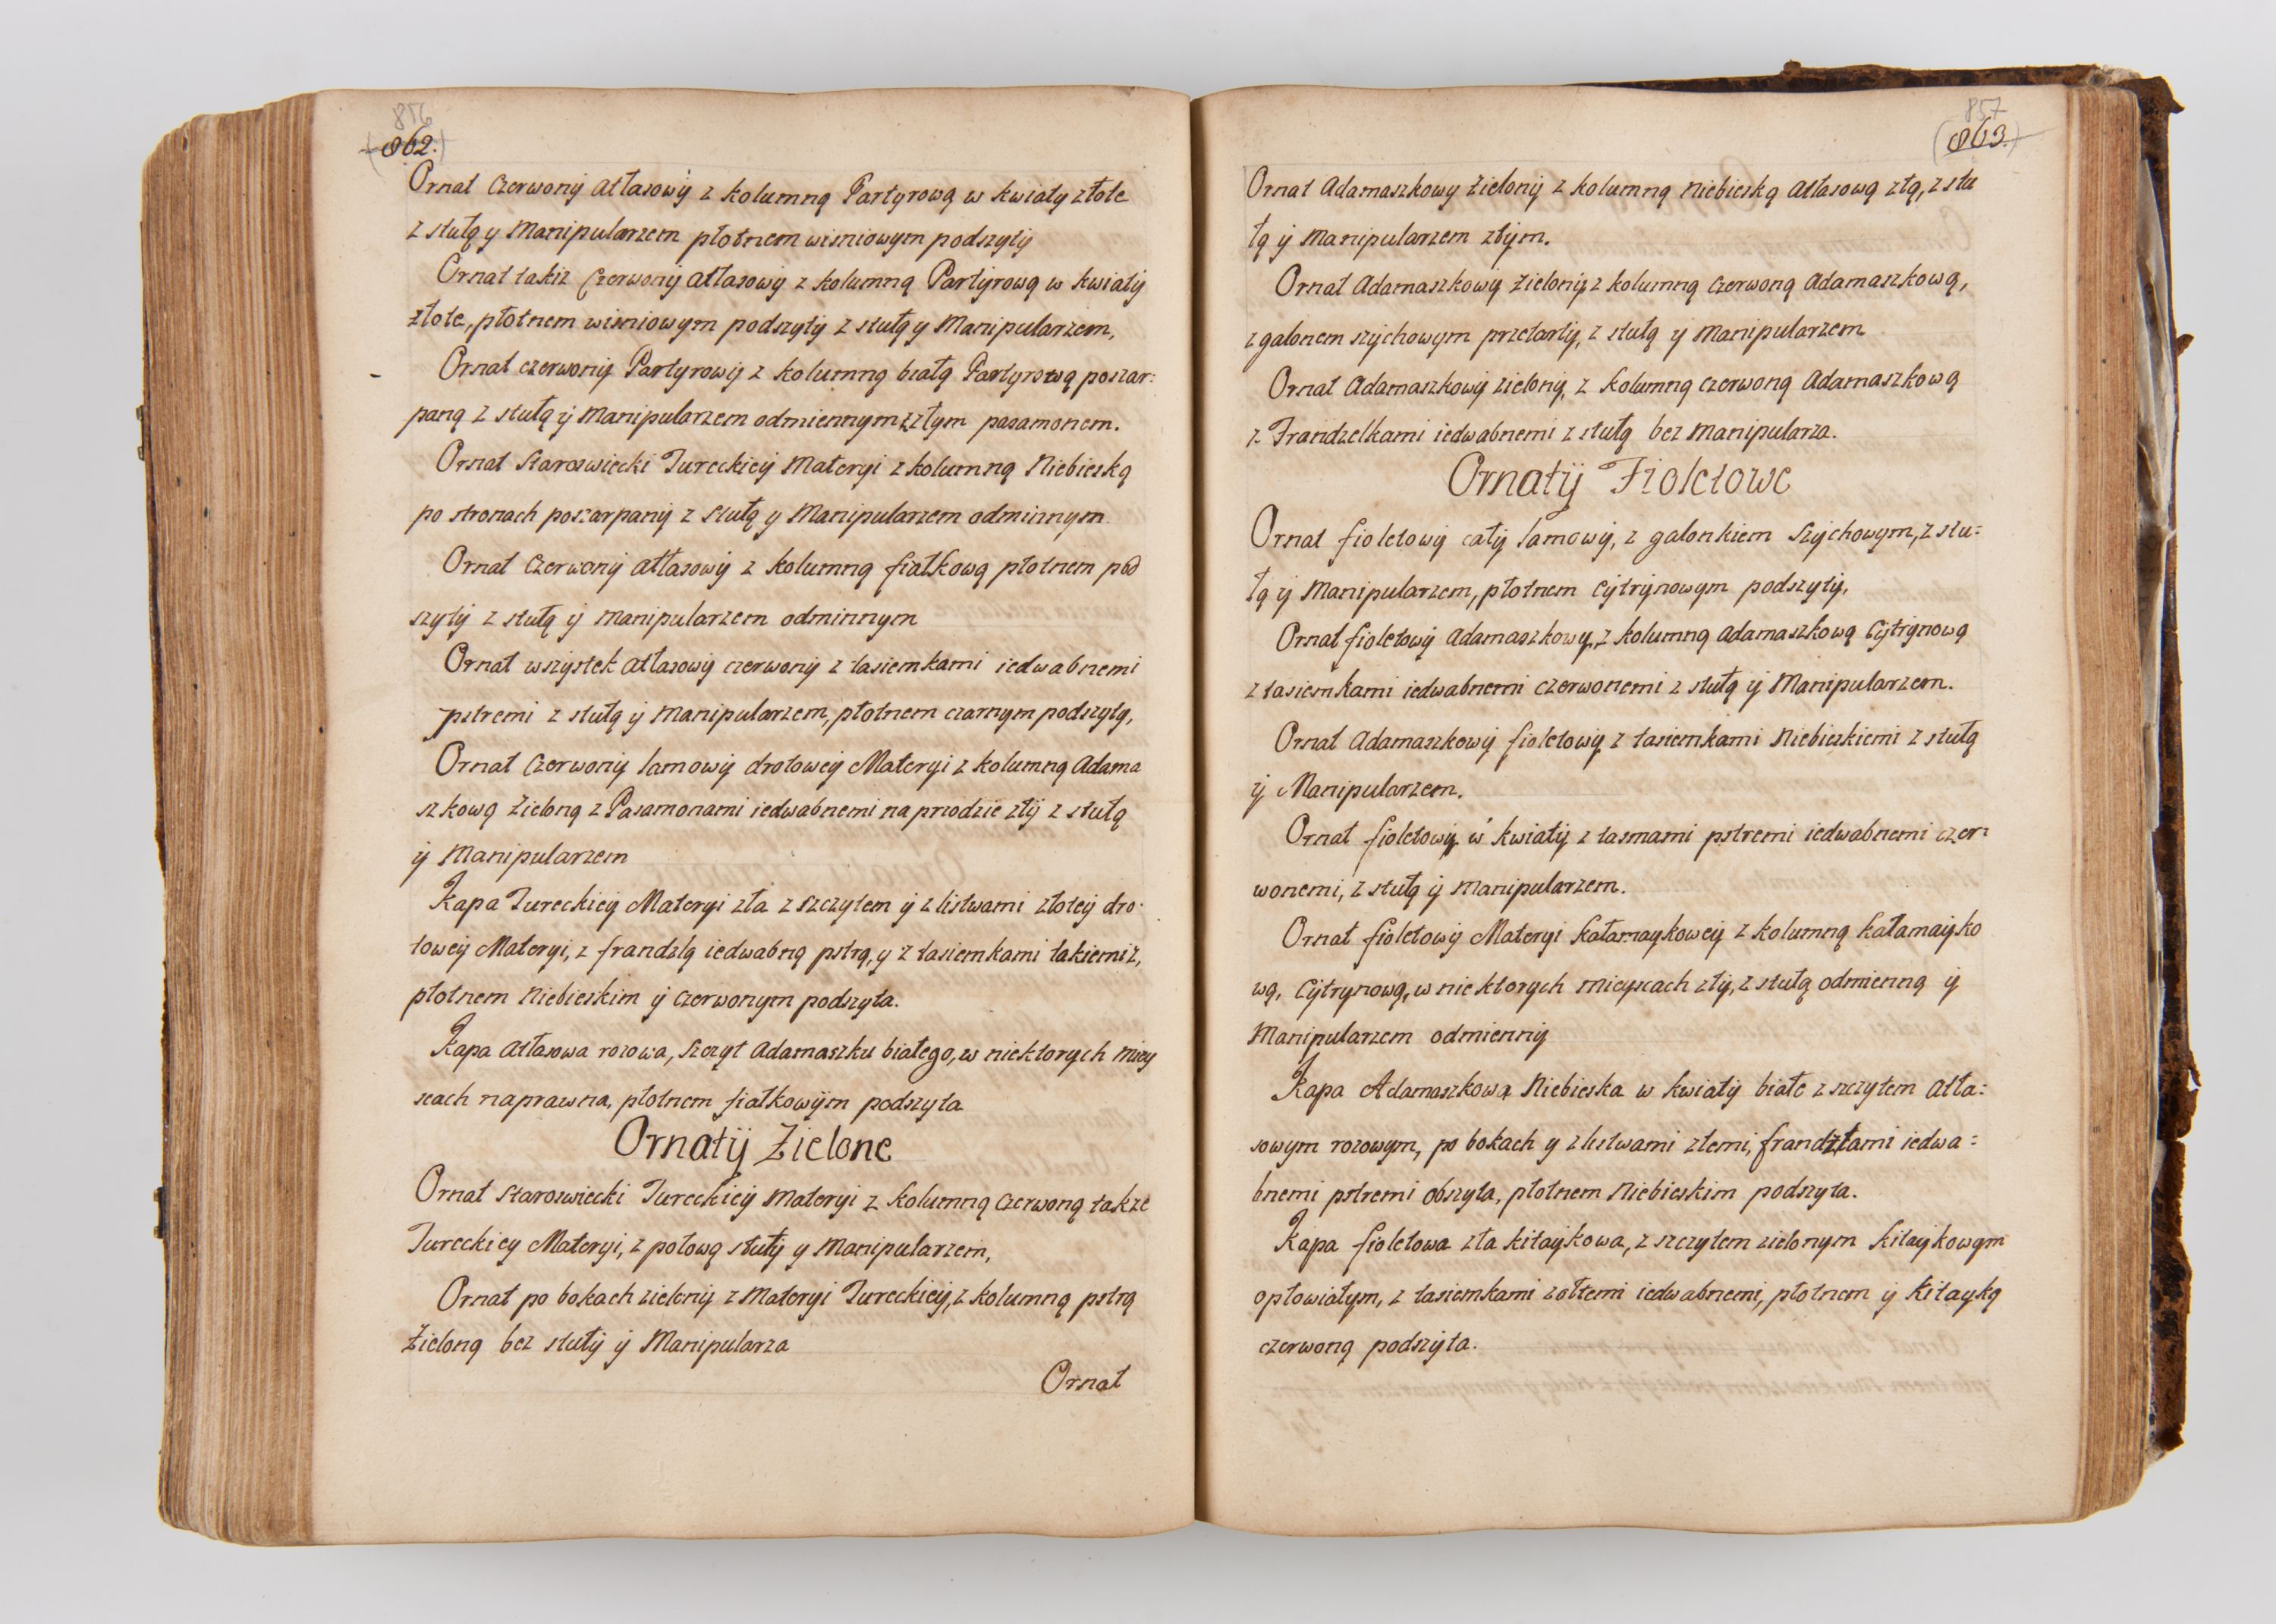 856
862.
Ornat Czerwony Atłasowy z kolumną Partyrową w kwiaty złote
z stułą y Manipularzem płotnem wisniowym podszyty
Ornat takiż Czerwony Atłasowy z kolumną Partyrową w kwiaty
złote, płotnem wisniowym podszyty z stułą y Manipularzem,
Ornat czerwony Partyrowy z kolumną białą Partyrową poszar:
paną z stułą y Manipularzem odmiennym z złym pasamonem.
Ornat Staroswiecki Tureckiey Materyi z kolumną Niebieską
po stronach poszarpany z stułą y Manipularzem odminnym
Ornat Czerwony Atłasowy z kolumną fiałkową płotnem pod
szyty z stułą y Manipularzem odminnym
Ornat wszystek Atłasowy czerwony z tasiemkami iedwabnemi
pstremi z stułą y Manipularzem, płotnem czarnym podszyty,
Ornat Czerwony lamowy drotowey Materyi z kolumną Adama
szkową Zieloną z Pasamonami iedwabnemi na przodzie zły z stułą
y Manipularzem
Kapa Tureckiey Materyi zła z szczytem y z listwami złotey dro:
towey Materyi, z frandzlą iedwabną pstrą, y z tasiemkami takiemiż,
płotnem Niebieskim y czerwonym podszyta.
Kapa Atłasowa rozowa, szczyt Adamaszku białego, w niektorych miey
scach naprawna, płotnem fiałkowym podszyta
Ornaty Zielone
Ornat Staroswiecki Tureckiey Materyi z kolumną Czerwoną także
Tureckiey Materyi, z połową stuły y Manipularzem,
Ornat po bokach zielony z Materyi Tureckiey, z kolumną pstrą
Zieloną bez stuły y Manipularza
Ornat
857
863.
Ornat Adamaszkowy Zielony z kolumną Niebieską Atłasową złą, z stu
łą y Manipularzem złym.
Ornat Adamaszkowy Zielony z kolumną czerwoną Adamaszkową,
z galonem szychowym przetarty, z stułą y Manipularzem
Ornat Adamaszkowy zielony, z kolumną czerwoną Adamaszkową
z Frandzelkami iedwabnemi z stułą bez Manipularza.
Ornaty Fioletowe
Ornat fioletowy cały lamowy, z galonkiem Szychowym, z stu:
łą y Manipularzem, płotnem Cytrynowym podszyty,
Ornat fioletowy Adamaszkowy, z kolumną Adamaszkową Cytrynową
z tasiemkami iedwabnemi czerwonemi z stułą y Manipularzem.
Ornat Adamaszkowy fioletowy z tasiemkami Niebieskiemi z stułą
y Manipularzem.
Ornat fioletowy w kwiaty z tasmami pstremi iedwabnemi czer:
wonemi, z stułą y Manipularzem.
Ornat fioletowy Materyi Kałamaykowey z kolumną kałamayko
wą, Cytrynową, w niektorych mieyscach zły, z stułą odmienną y
Manipularzem odmienny
Kapa Adamaszkowa Niebieska w kwiaty białe z szczytem Atła:
sowym rozowym, po bokach y z listwami złemi, frandzlami iedwa:
bnemi pstremi obszyta, płotnem Niebieskim podszyta.
Kapa fioletowa zła kitaykowa, z szczytem zielonym Kitaykowym
opłowiałym, z tasiemkami zołtemi iedwabnemi, płotnem y Kitayką
czerwoną podszyta.